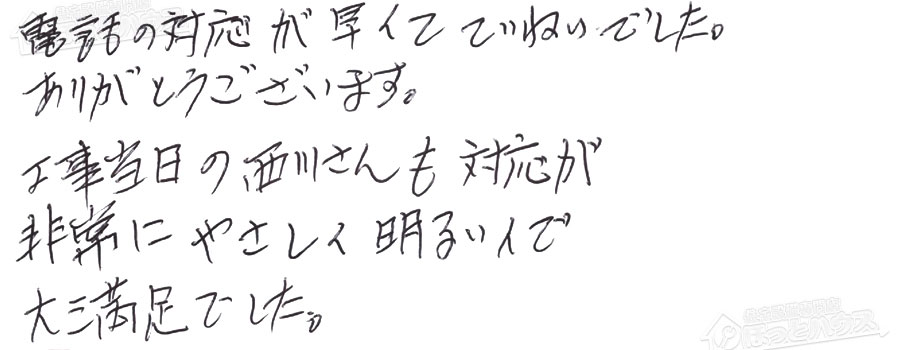 電話の対応が早くてていねいでした。
ありがとうございます。
工事当日の西川さんも対応が
非常にやさしく明るい人で
大満足でした。
ほっとハウス